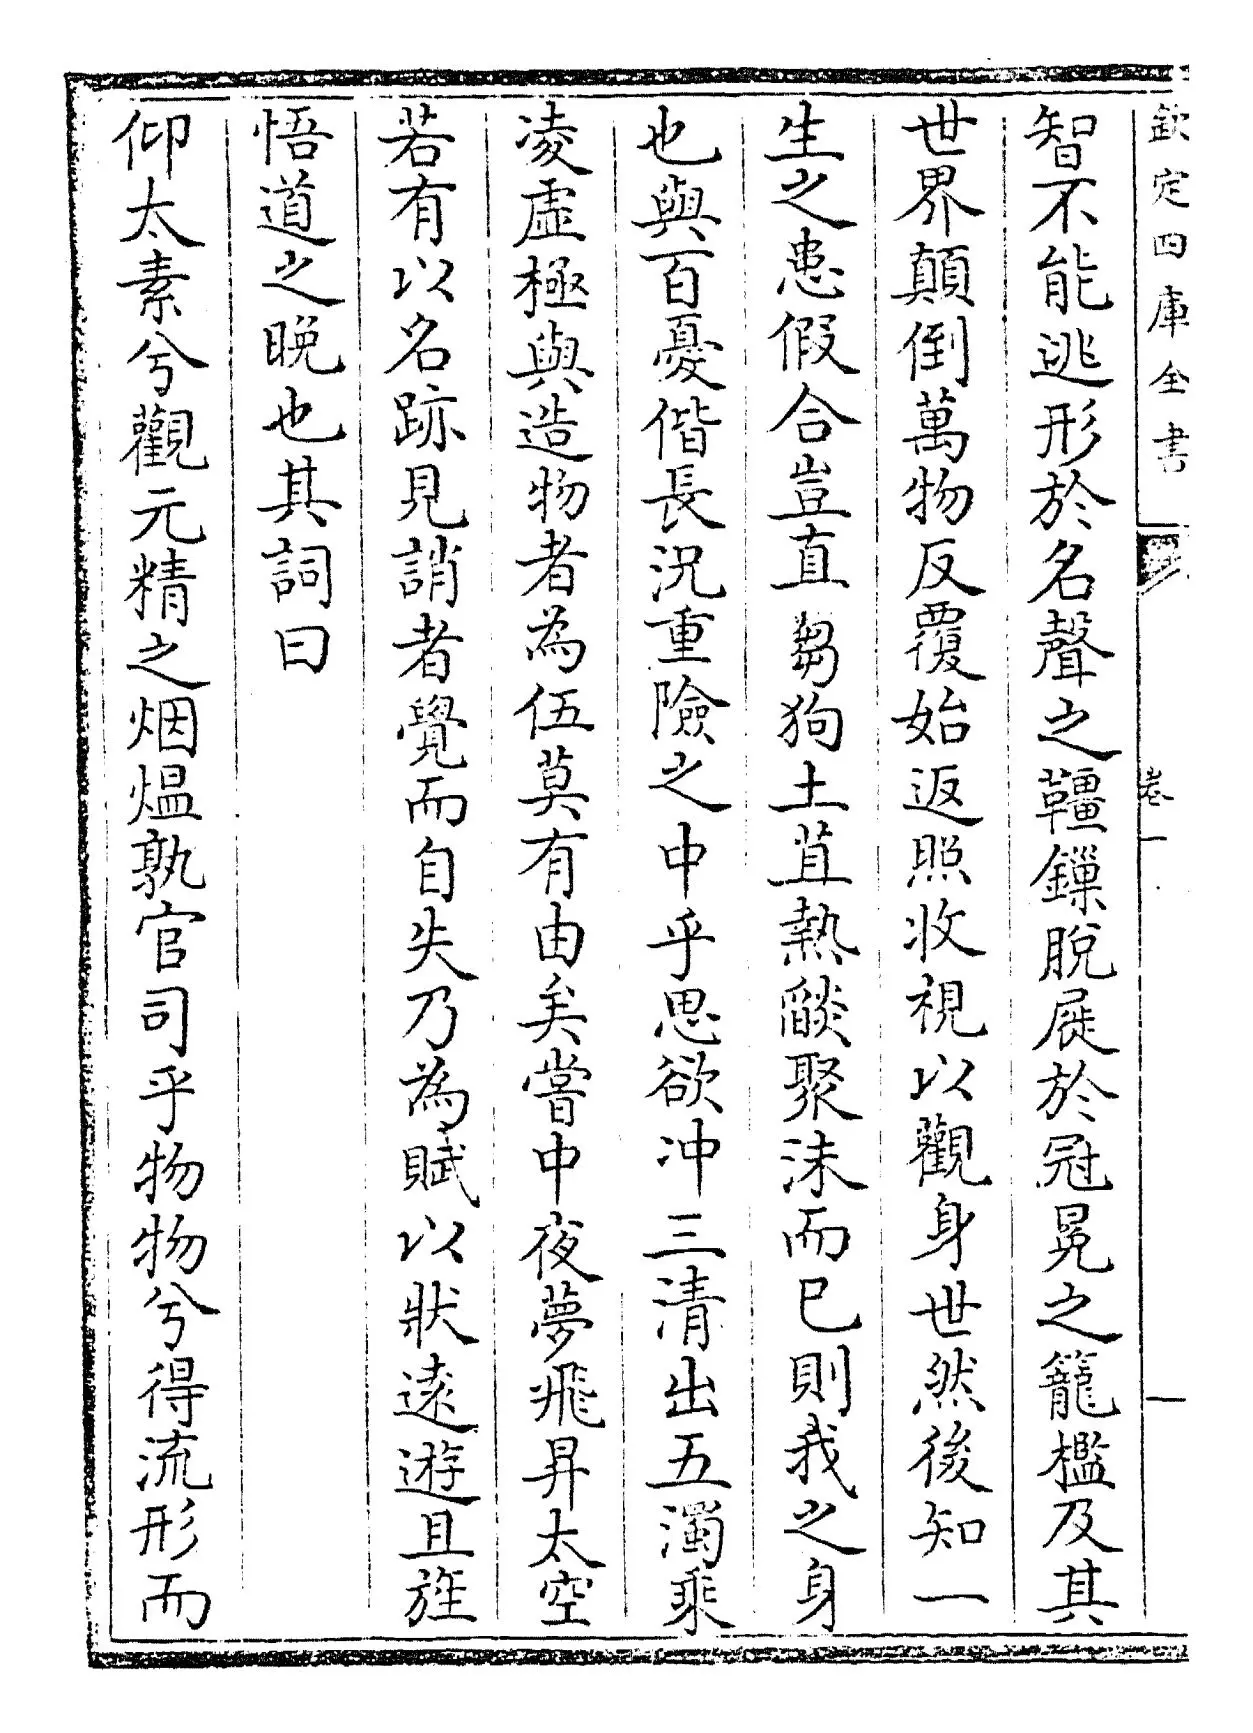 欽定四庫全書
卷一
一
智不能逃形於名聲之韁鏁脫屣於冠冕之籠檻及其
世界顛倒萬物反覆始返照收視以觀身世然後知一
生之患假合豈直芻狗土苴熱燄聚沫而已則我之身
也與百憂偕長況重險之中乎思欲沖三清出五濁乘
凌虛極與造物者為伍莫有由矣嘗中夜夢飛昇太空
若有以名跡見誚者覺而自失乃為賦以狀遠遊且旌
悟道之晚也其詞曰
仰太素兮觀元精之烟煴孰官司乎物物兮得流形而